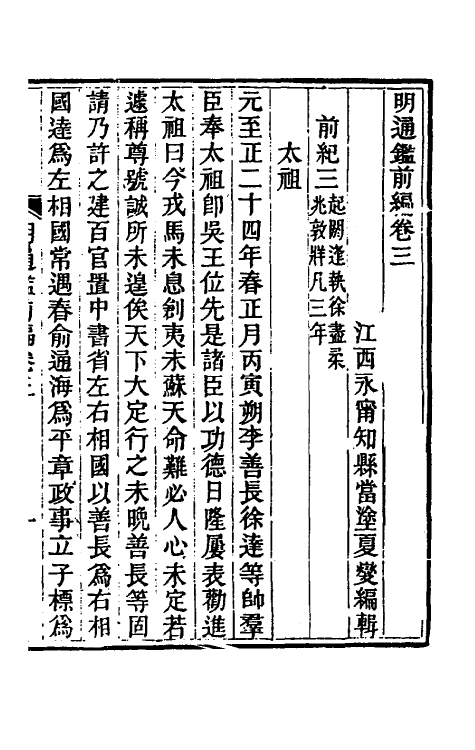 明通鑑前編卷三
江西永甯知縣當塗夏燮編輯
前紀三起閼逢執徐盡柔
兆敦牂凡三年
太祖
元至正二十四年春正月丙寅朔李善長徐達等帥羣
臣奉太祖卽吳王位先是諸臣以功德日隆屢表勸進
太祖曰今戎馬未息創夷未蘇天命難必人心未定若
遽稱尊號誠所未遑俟天下大定行之未晩善長等固
請乃許之建百官置中書省左右相國以善長爲右相
國達爲左相國常遇春俞通海爲平章政事立子標爲
明通鑑前編卷三
一